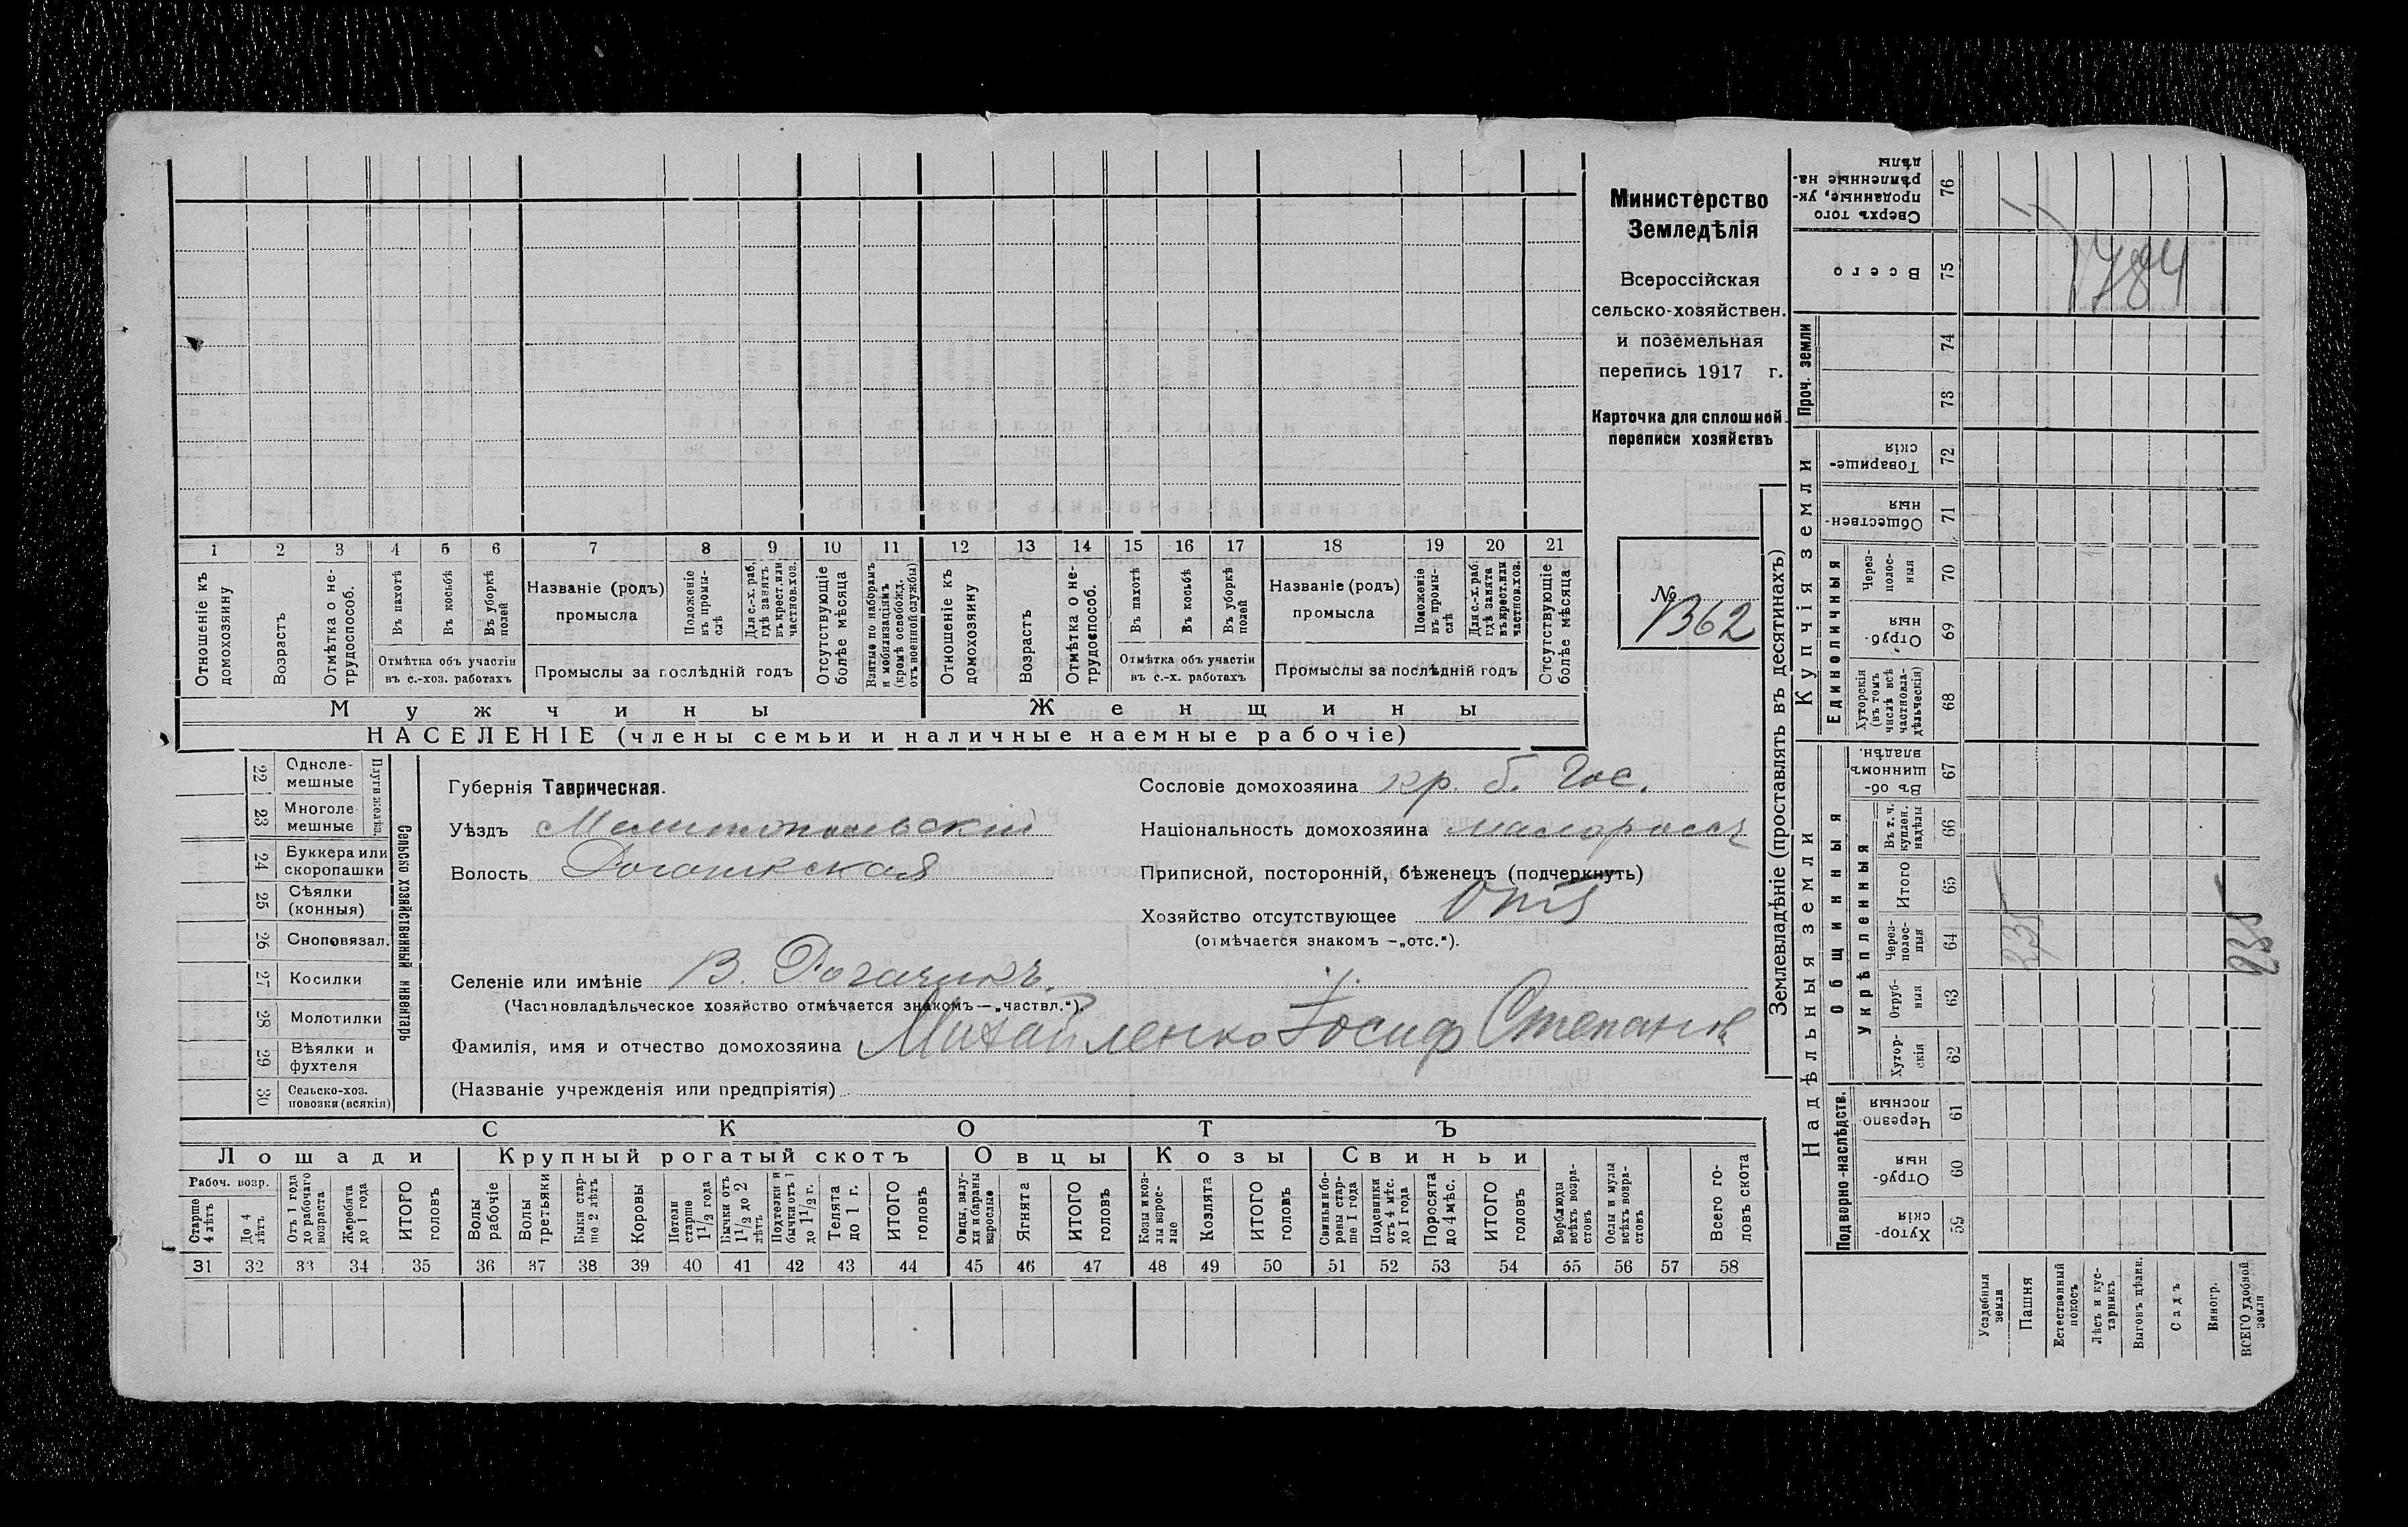 Министерство
Земледѣлія
Всероссійская
сельско-хозяйствен.
и поземельная
перепись 1917 г.
Карточка для сплошной
переписи хозяйствъ
№
1362
1 2 3 4 5 6 7 8 9 10 11 12 13 14 15 16 17 18 19 20 21
Отношеніе къ домохозяину
Возрастъ
Отмѣтка о нетрудоспособ.
Въ пахотѣ
Въ косьбѣ
Въ уборкѣ полей
Отмѣтка объ участіи
въ с.-хоз. работахъ
Названіе (родъ)
промысла
Положеніе въ промыслѣ
Для с.-х. раб. гдѣ занятъ въ крест. или частнов. хоз.
Промыслы за послѣдній годъ
Отсутствующіе болѣе мѣсяца
Взятые по наборамъ и мобилизаціямъ (кромѣ освобожд. отъ военной службы)
Отношеніе къ домохозяину
Возрастъ
Отмѣтка о нетрудоспособ.
Въ пахотѣ
Въ косьбѣ
Въ уборкѣ полей
Отмѣтка объ участіи
въ с.-х. работахъ
Названіе (родъ)
промысла
Положеніе въ промыслѣ
Для с.-х. раб. гдѣ занята въ крест. или частнов. хоз.
Промыслы за послѣдній годъ
Отсутствующіе болѣе мѣсяца
Мужчины
Женщины
НАСЕЛЕНІЕ (члены семьи и наличные наемные рабочіе)
22 Однолемешные
23 Многолемешные
Плуги желѣз.
24 Буккера или скоропашки
25 Сѣялки (конныя)
26 Сноповязал.
27 Косилки
28 Молотилки
29 Вѣялки и фухтеля
30 Сельско-хоз. повозки (всякія)
Сельско хозяйственный инвентарь
Губернія Таврическая.
Уѣздъ Мелитопольскій
Волость Рогачикская
Селеніе или имѣніе В. Рогачикъ.
(Частновладѣльческое хозяйство отмѣчается знакомъ—„частвл.“)
Фамилія, имя и отчество домохозяина Михайленко Іосиф Степанов
(Названіе учрежденія или предпріятія)
Сословіе домохозяина кр. б. Гос.
Національность домохозяина малоросс
Приписной, посторонній, бѣженецъ (подчеркнуть)
Хозяйство отсутствующее
(отмѣчается знакомъ —„отс.“).
СКОТЪ
Лошади
Рабоч. возр.
Старше 4 лѣтъ
До 4 лѣтъ
Отъ 1 года до рабочаго возраста
Жеребята до 1 года
ИТОГО головъ
Крупный рогатый скотъ
Волы рабочіе
Волы третьяки
Быки старше 2 лѣтъ
Коровы
Нетели старше 1 1/2 года
Бычки отъ 1 1/2 до 2 лѣтъ
Подтелки и бычки отъ 1 до 1 1/2 г.
Телята до 1 г.
ИТОГО головъ
Овцы
Овцы, валухи и бараны взрослые
Ягнята
ИТОГО головъ
Козы
Козы и козлы взрослые
Козлята
ИТОГО головъ
Свиньи
Свиньи и боровы старше 1 года
Подсвинки отъ 4 мѣс. до 1 года
Поросята до 4 мѣс.
ИТОГО головъ
Верблюды всѣхъ возрастовъ
Ослы и мулы всѣхъ возрастовъ
Всего головъ скота
31 32 33 34 35 36 37 38 39 40 41 42 43 44 45 46 47 48 49 50 51 52 53 54 55 56 57 58
Землевладѣніе (проставлять въ десятинахъ)
Надѣльныя земли
Подворно-наслѣдств.
Хуторскія 59
Отрубныя 60
Черезполосныя 61
Общинныя
Укрѣпленныя
Хуторскія 62
Отрубныя 63
Черезполосныя 64
Итого 65
Въ т. ч. куплен. надѣлы 66
Въ общинномъ владѣн. 67
Купчія земли
Единоличныя
Хуторскія (въ томъ числѣ всѣ частновладѣльческія) 68
Отрубныя 69
Черезполосныя 70
Общественныя 71
Товарищескія 72
Проч. земли
73 74
Всего 75
Сверхъ того проданные, укрѣпленные надѣлы 76
Усадебныя земли
Пашня
Естественный покосъ
Лѣсъ и кустарникъ
Выгонъ цѣлин.
Садъ
Виногр.
ВСЕГО удобной земли
1784